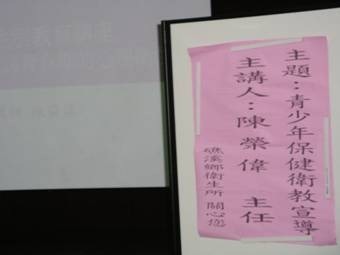 主題：青少年保健衛教宣導
主講人：陳榮偉 主任
礁溪鄉衛生所 關心您